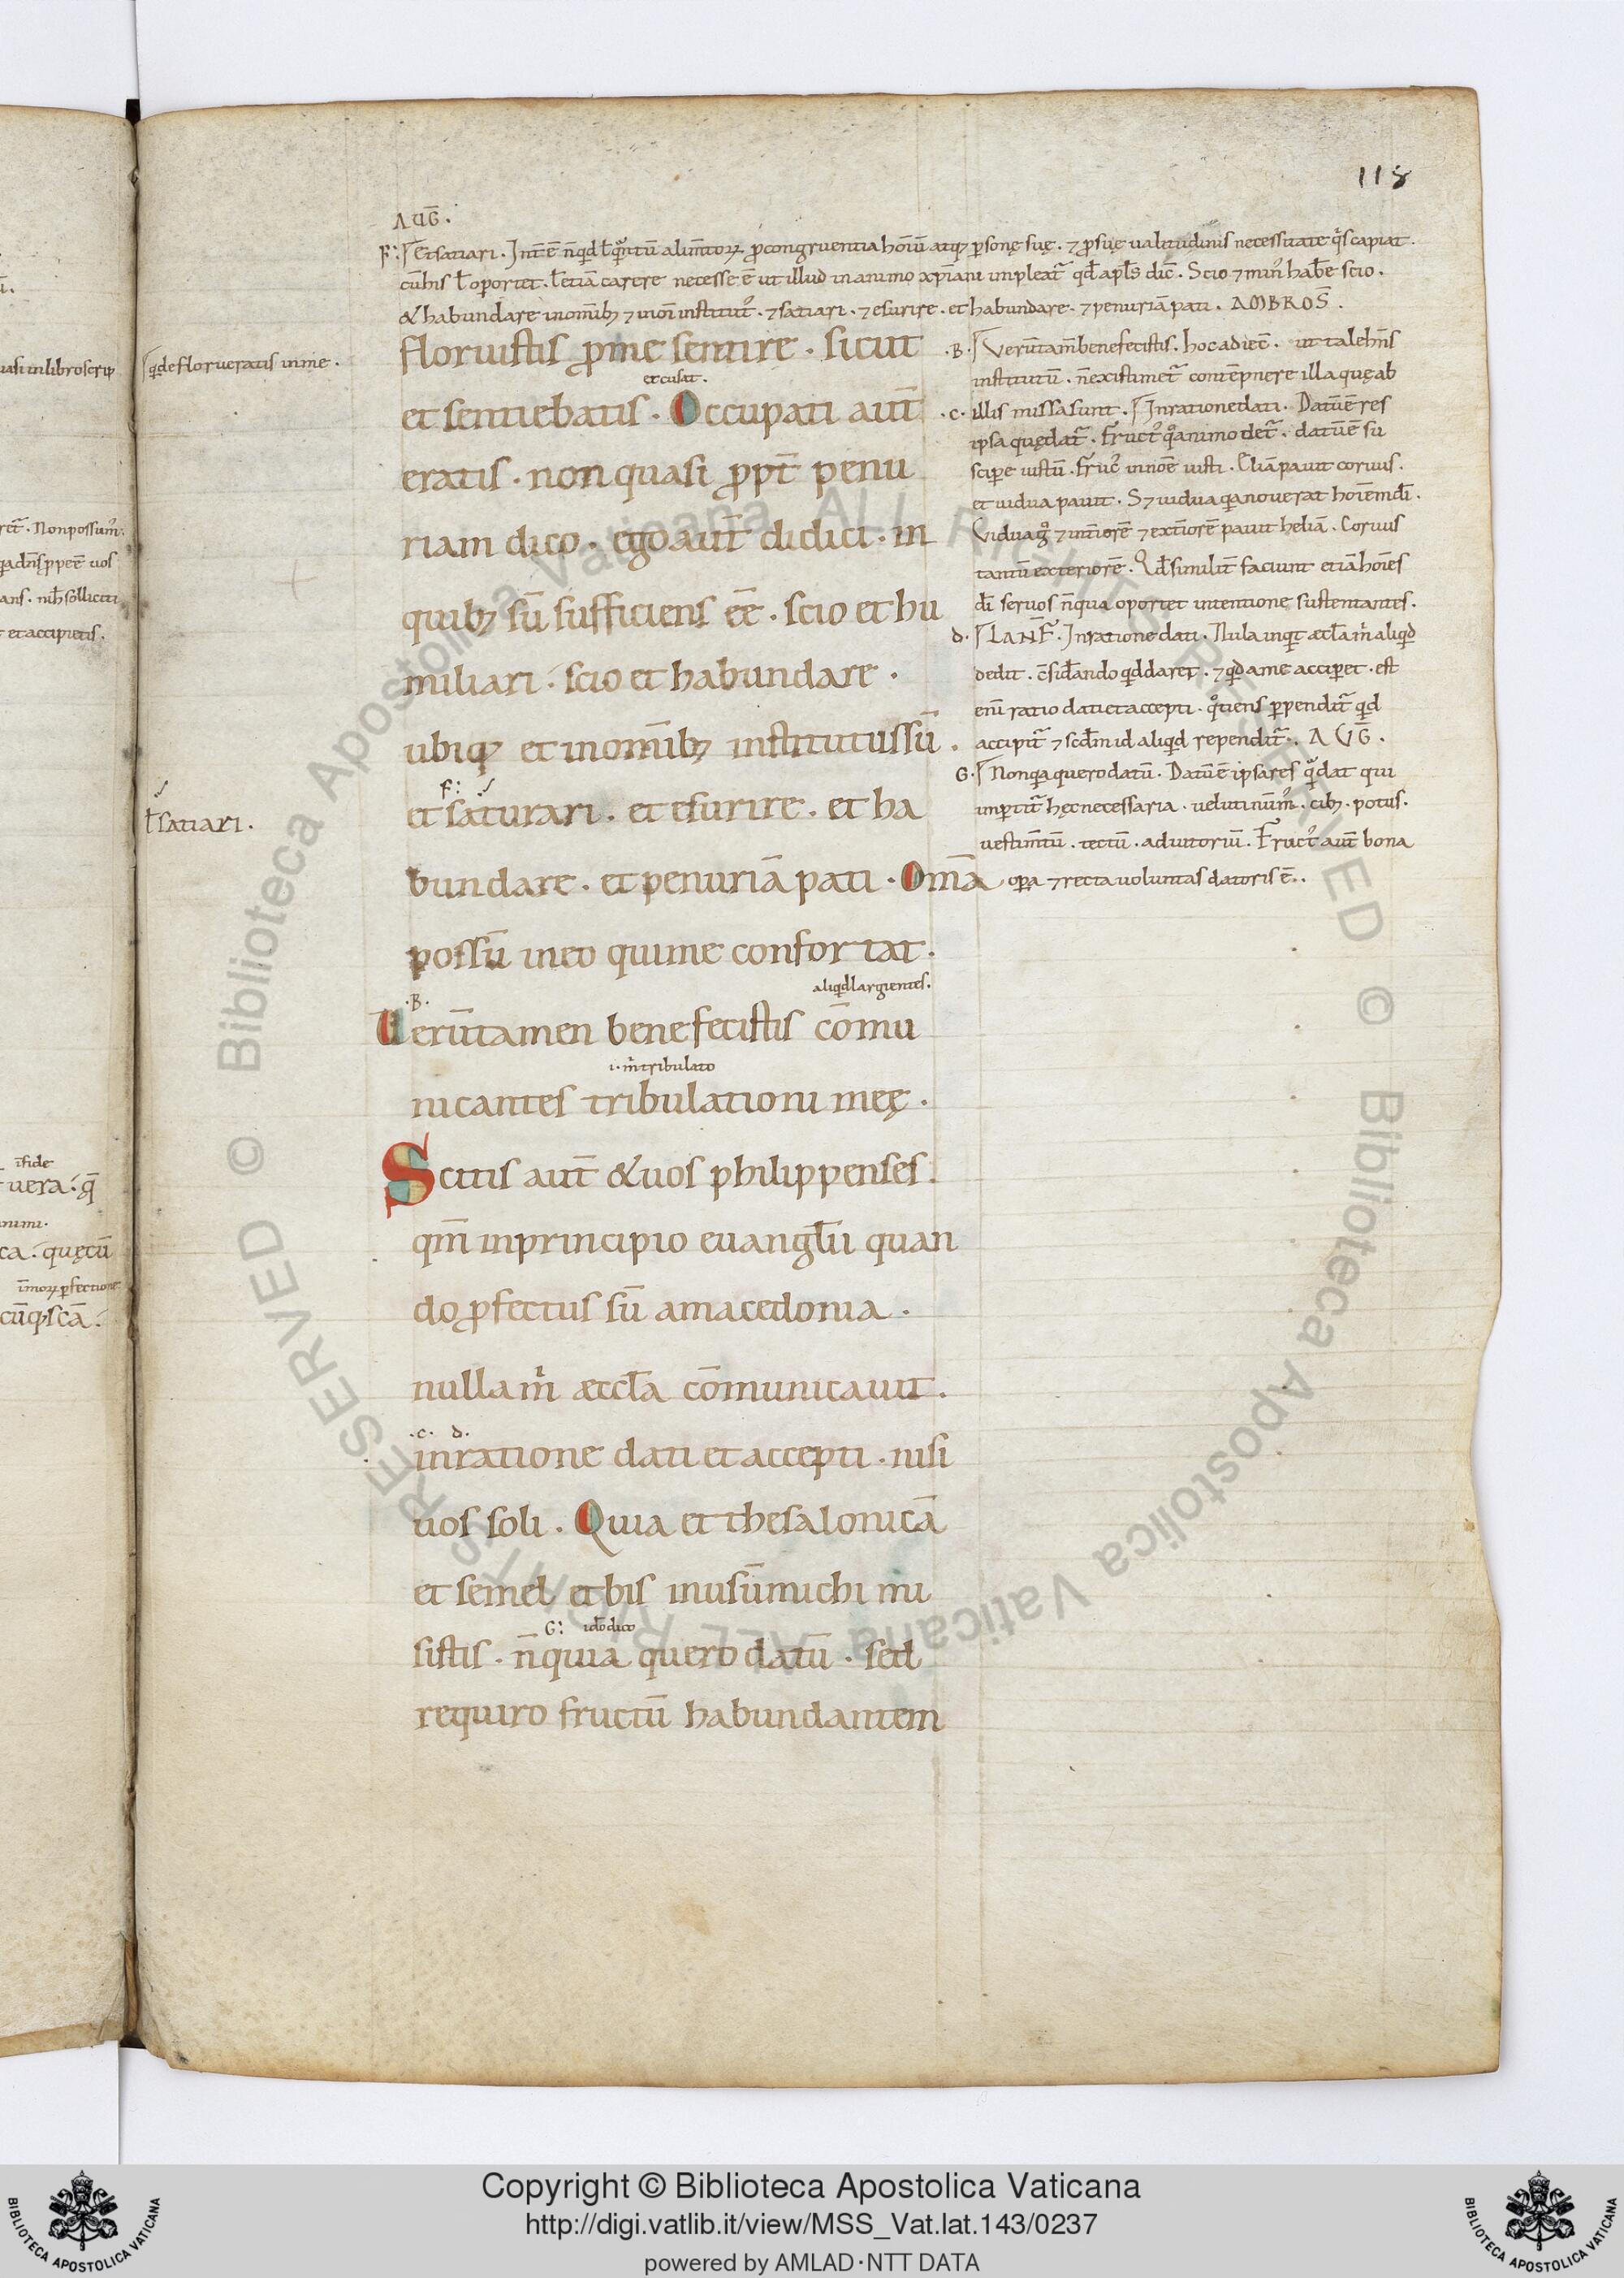 118
AUG̅.
F: Et satiari. Int̅ e̅ n̅ qd̅ ł qntu̅ alim̅toꝝ ꝓ congruentia ho̅iu̅ atqꝫ ꝑsonę suę. ⁊ ꝓ suę ualitudinis necessitate qs capiat.
cu̅ his ł oportet. ł etia̅ carere necesse e̅ ut illud in animo xp̅iani impleat̅ qd̅ apl̅s dic̅. Scio ⁊ min' hab̅e scio.
& habundare in om̅ibꝫ ⁊ in o̅i institut'. ⁊ satiari. ⁊ esurire. et habundare. ⁊ penuria̅ pati. AMBROS̅.
qd̅ eflorueratis in me.
floruistis ꝓ me sentire. sicut
excusat.
et sentiebatis. Occupati aut̅
eratis. non quasi ꝓpt̅ penu
riam dico. ego aut̅ didici. in
quibꝫ su̅ sufficiens e̅e. scio et hu
miliari. scio et habundare.
ubiqꝫ et in om̅ibꝫ institutus su̅.
F:
ł satiari.
et saturari. et esurire. et ha
bundare. et penuria̅ pati. Om̅a
possu̅ in eo qui me confortat.
aliqd̅ largientes.
.B.
Ueru̅tamen bene fecistis co̅mu
i. m̅ tribulato
nicantes tribulationi meę.
Scitis aut̅ & uos philippenses.
qm̅ in principio euangl̅ii quan
do ꝓfectus su̅ a macedonia.
nulla m̅ aeccl̅a co̅municauit.
.c. d.
in ratione dati et accepti. nisi
uos soli. Quia et thesalonica̅
et semel et bis in usu̅ michi mi
G: ido̅ dico
sistis. n̅ quia quero datu̅. sed
requiro fructu̅ habundantem
.B. Ueru̅tam̅ bene fecistis. hoc adiec̅. ut tale he̅ns
institutu̅. n̅ existimet̅ conte̅pnere illa quę ab
.c. illis missa sunt. In ratione dati. Datu̅ e̅ res
ipsa quę dat̅. Fruct' qo animo det̅. datu̅ e̅ su
scipe iustu̅. Fruc' in no̅e iusti. Elia̅ pauit coruus.
et uidua pauit. S⁊ uidua qa nouerat hoi̅em di̅.
Vidua g ⁊ int̅iore̅ ⁊ ext̅iore̅ pauit helia̅. Coruus
tantu̅ exteriore̅. Qd̅ similit̅ faciunt etia̅ ho̅ies
di̅ seruos n̅ qua oportet intentione sustentantes.
d. LANF̅. In ratione dati. Nulla inqt aeccl̅a m̅ aliqd
dedit. c̅sid̅ando qd daret. ⁊ qd a me acciperet. est
eni̅ ratio dati et accepti. qotiens ꝑpendit̅ qd
accipit̅ ⁊ scd̅m id aliqd rependit̅. AUG̅.
G. Non qa quero datu̅. Datu̅ e̅ ipsa res qa dat qui
impertit̅ hęc necessaria. ueluti nu̅m'. cibꝫ. potus.
uestim̅tu̅. tectu̅. adiutoriu̅. Fruct' aut̅ bona
opa ⁊ recta uoluntas datoris e̅.
Copyright © Biblioteca Apostolica Vaticana
http://digi.vatlib.it/view/MSS_Vat.lat.143/0237
powered by AMLAD·NTT DATA